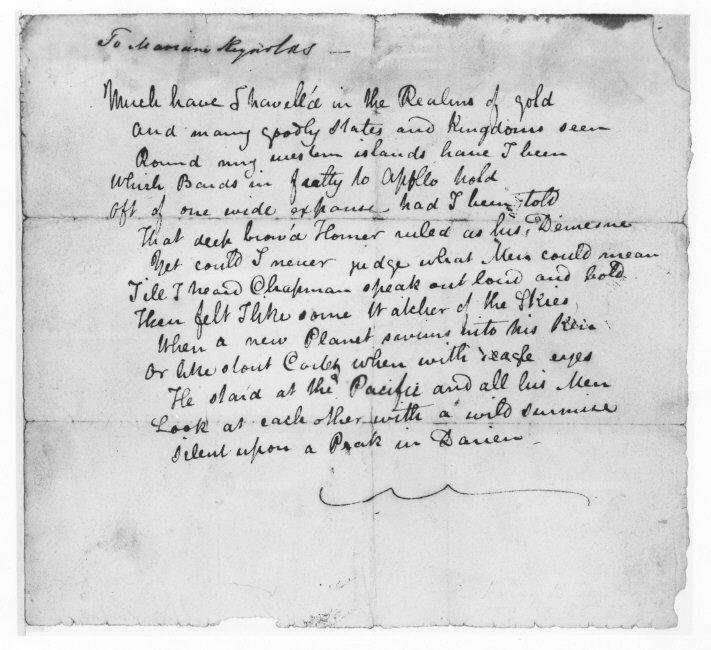 To Mariane Reynolds —
Much have I travell'd in the Realms of gold
And many goodly States and Kingdoms seen
Round many western islands have I been
Which Bards in fealty to Apollo hold
Oft of one wide expanse had I been told
That deep brow'd Homer ruled as his Demesne
Yet could I never judge what Men could mean
Till I heard Chapman speak out loud and bold
Then felt I like some Watcher of the Skies
When a new Planet swims into his Ken
Or like stout Cortez when with eagle eyes
He star'd at the Pacific and all his Men
Look at each other with a wild surmise
Silent upon a Peak in Darien —